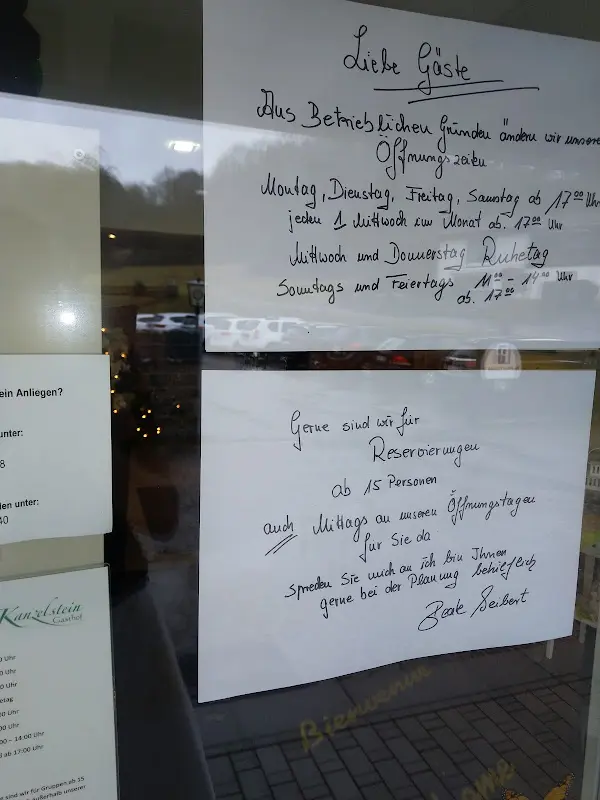 Liebe Gäste
Aus Betrieblichen Gründen ändern wir unsere
Öffnungszeiten
Montag, Dienstag, Freitag, Samstag ab 17⁰⁰ Uhr
jeden 1 Mittwoch im Monat ab. 17⁰⁰ Uhr
Mittwoch und Donnerstag Ruhetag
Sonntags und Feiertags 11⁰⁰ - 14⁰⁰ Uhr
ab. 17⁰⁰
Gerne sind wir für
Reservierungen
ab 15 Personen
auch Mittags an unseren Öffnungstagen
für Sie da
Spreden Sie mich an ich bin Ihnen
gerne bei der Planung behilflich
Beate Seibert
ein Anliegen?
unter:
8
den unter:
40
Kanzelstein
Gasthof
0 Uhr
0 Uhr
0 Uhr
etag
00 Uhr
00 Uhr
00 – 14:00 Uhr
d ab 17:00 Uhr
e sind wir für Gruppen ab 15
außerhalb unserer
Bienvenue